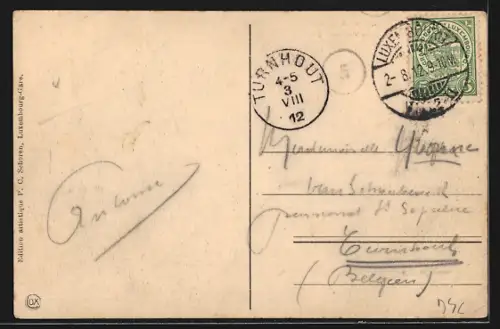 Edition artistique P. C. Schoren, Luxembourg-Gare.
TURNHOUT
4-5
3
VIII
12
5
LUXEMBOURG
2-8.12. 9-10
5
Antoine
Mademoiselle
Van
pensionnat St Sepulcre
Turnhout
(Belgien)